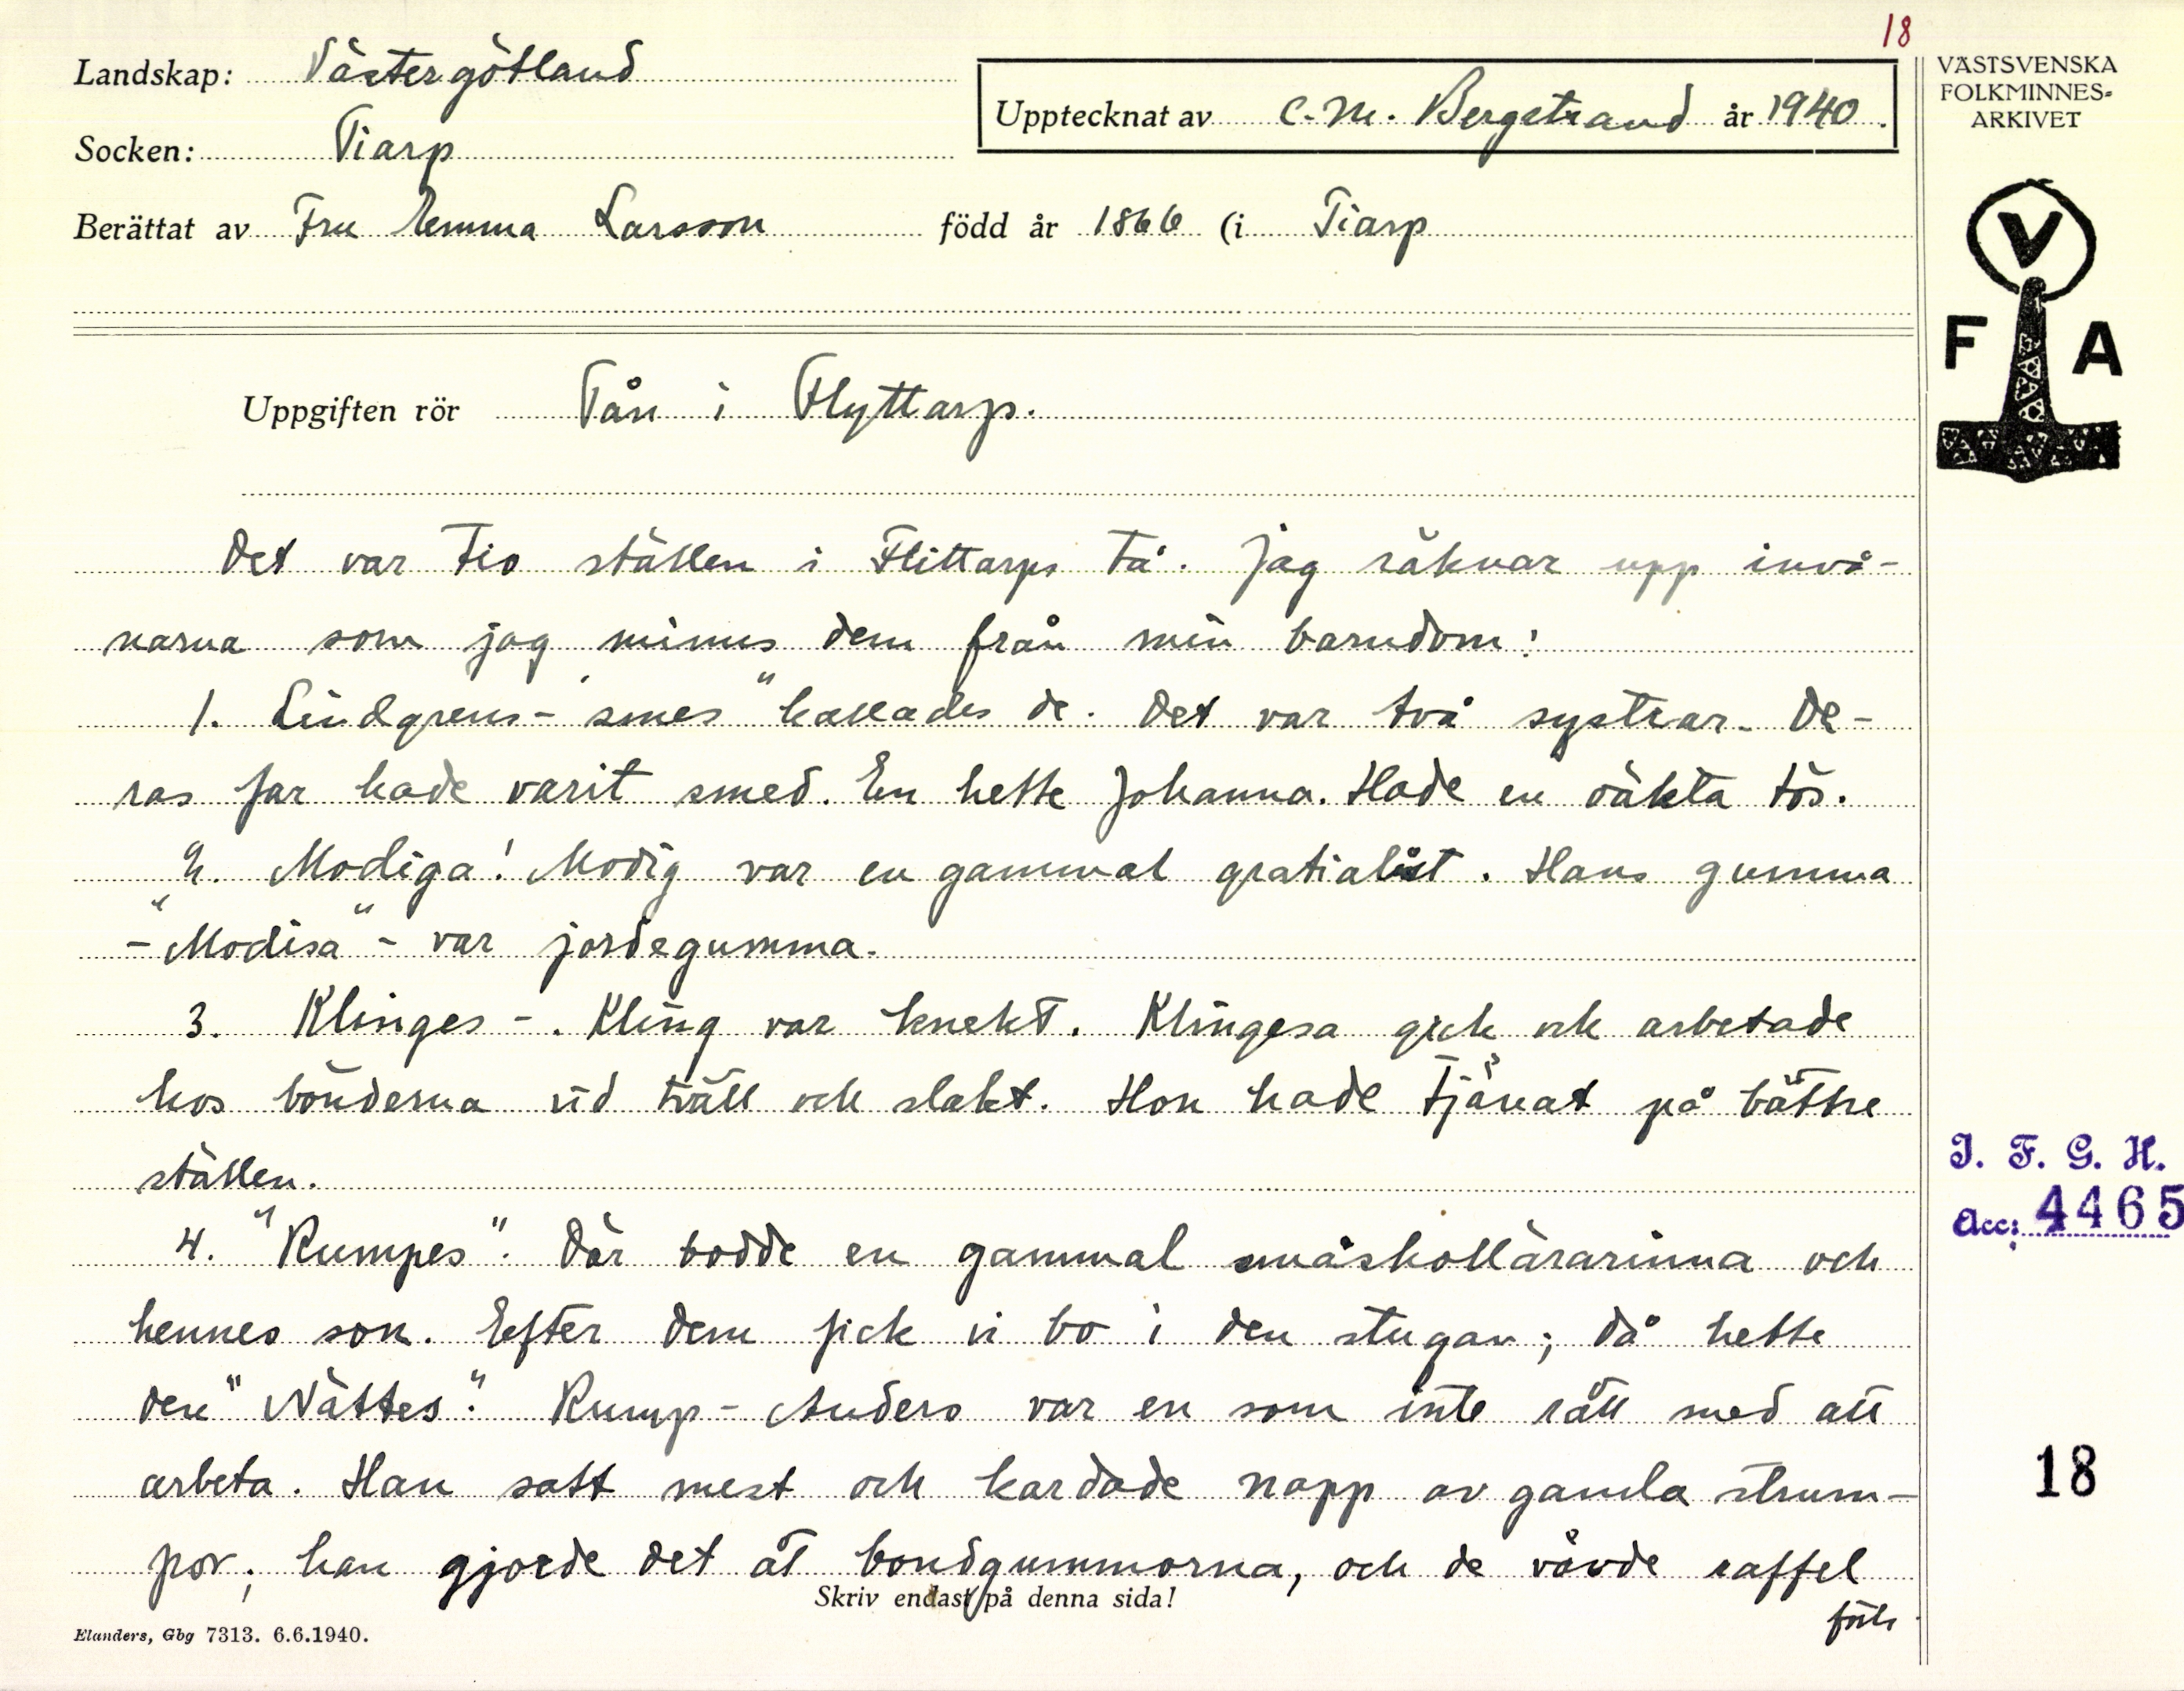 18
Landskap: Västergötland
Upptecknat av C.M. Bergstrand år 1940.
Socken: Tiarp
Berättat av Fru Emma Larsson född år 1866 (i Tiarp
VÄSTSVENSKA
FOLKMINNES-
ARKIVET
V
F A
Uppgiften rör Tån i Flyttarp.
Det var tio ställen i Flittarps tå. Jag räknar upp invå-
narna som jag minns dem från min barndom:
1. Lindgrens- "smes" kallades de. Det var två systrar. De-
ras far hade varit smed. En hette Johanna. Hade en oäkta tös.
2. Modiga! Modig var en gammal gratialist. Hans gumma
- "Modisa" - var jordegumma.
3. Klinges -. Kling var knekt. Klingesa gick och arbetade
hos bönderna vid tvätt och slakt. Hon hade tjänat på bättre
ställen.
4. "Rumpes". Där bodde en gammal småskollärarinna och
hennes son. Efter dem fick vi bo i den stugan; då hette
den "Nättes". Rump-Anders var en som inte rått med att
arbeta. Han satt mest och kardade napp av gamla strum-
por; han gjorde det åt bondgummorna, och de vävde raffel
Skriv endast på denna sida!
Elanders, Gbg 7313. 6.6.1940.
I. F. G. H.
Acc: 4465
18